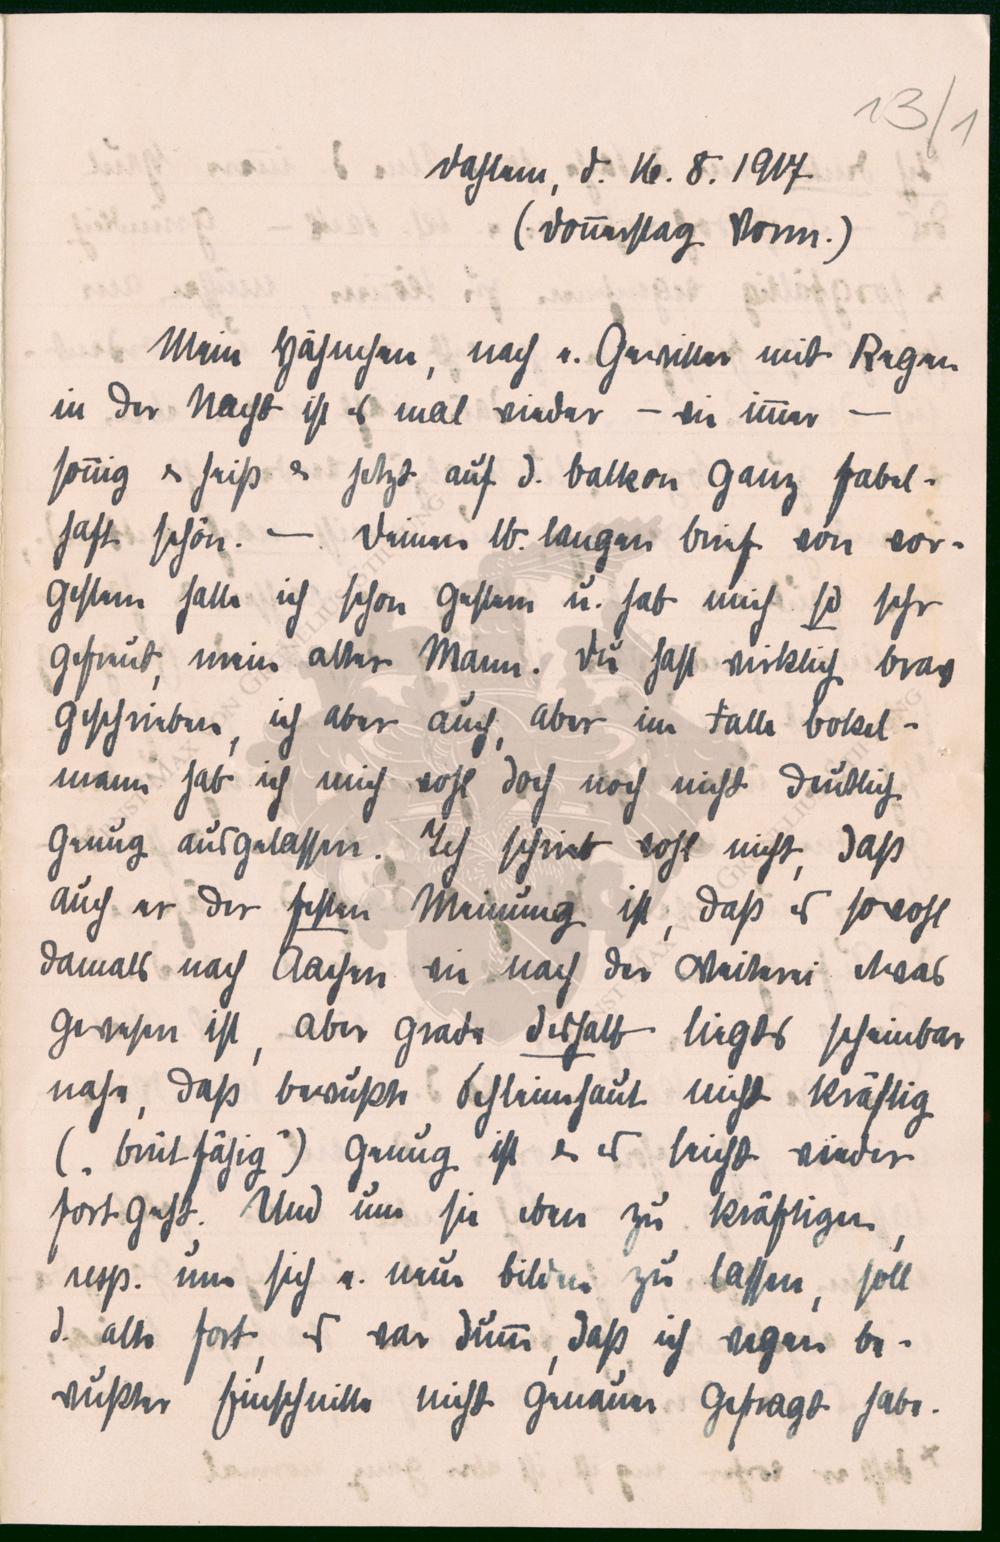 13/1
Dahlem, d. 16. 8. 1917
(Don̅erstag Vorm.)
Mein Hähnchen, nach e. Gewitter mit Regen
in der Nacht ist es mal wieder – wie im̅er –
son̅ig & heiß & jetzt auf d. Balkon ganz fabel-
haft schön. — Deinen lb. langen Brief von vor-
gestern hatte ich schon gestern u. hab mich so sehr
gefreut, mein alter Mann. Du hast wirklich brav
geschrieben, ich aber auch, aber im Falle Bokel-
mann hab ich mich wohl doch noch nicht deutlich
genug ausgelassen. Ich schrieb wohl nicht, daß
auch er der festen Meinung ist, daß es sowohl
damals nach Aachen wie nach der etwas
gewesen ist, aber grade deshalb liegts scheinbar
nahe, daß bewußte Schleimhaut nicht kräftig
(„brütfähig") genug ist & es leicht wieder
fortgeht. Und um sie eben zu kräftigen,
resp. um sich e. neue bilden zu lassen, soll
d. alte fort, es war dum̅, daß ich wegen be-
wußter Einschnitte nicht genauer gefragt habe.